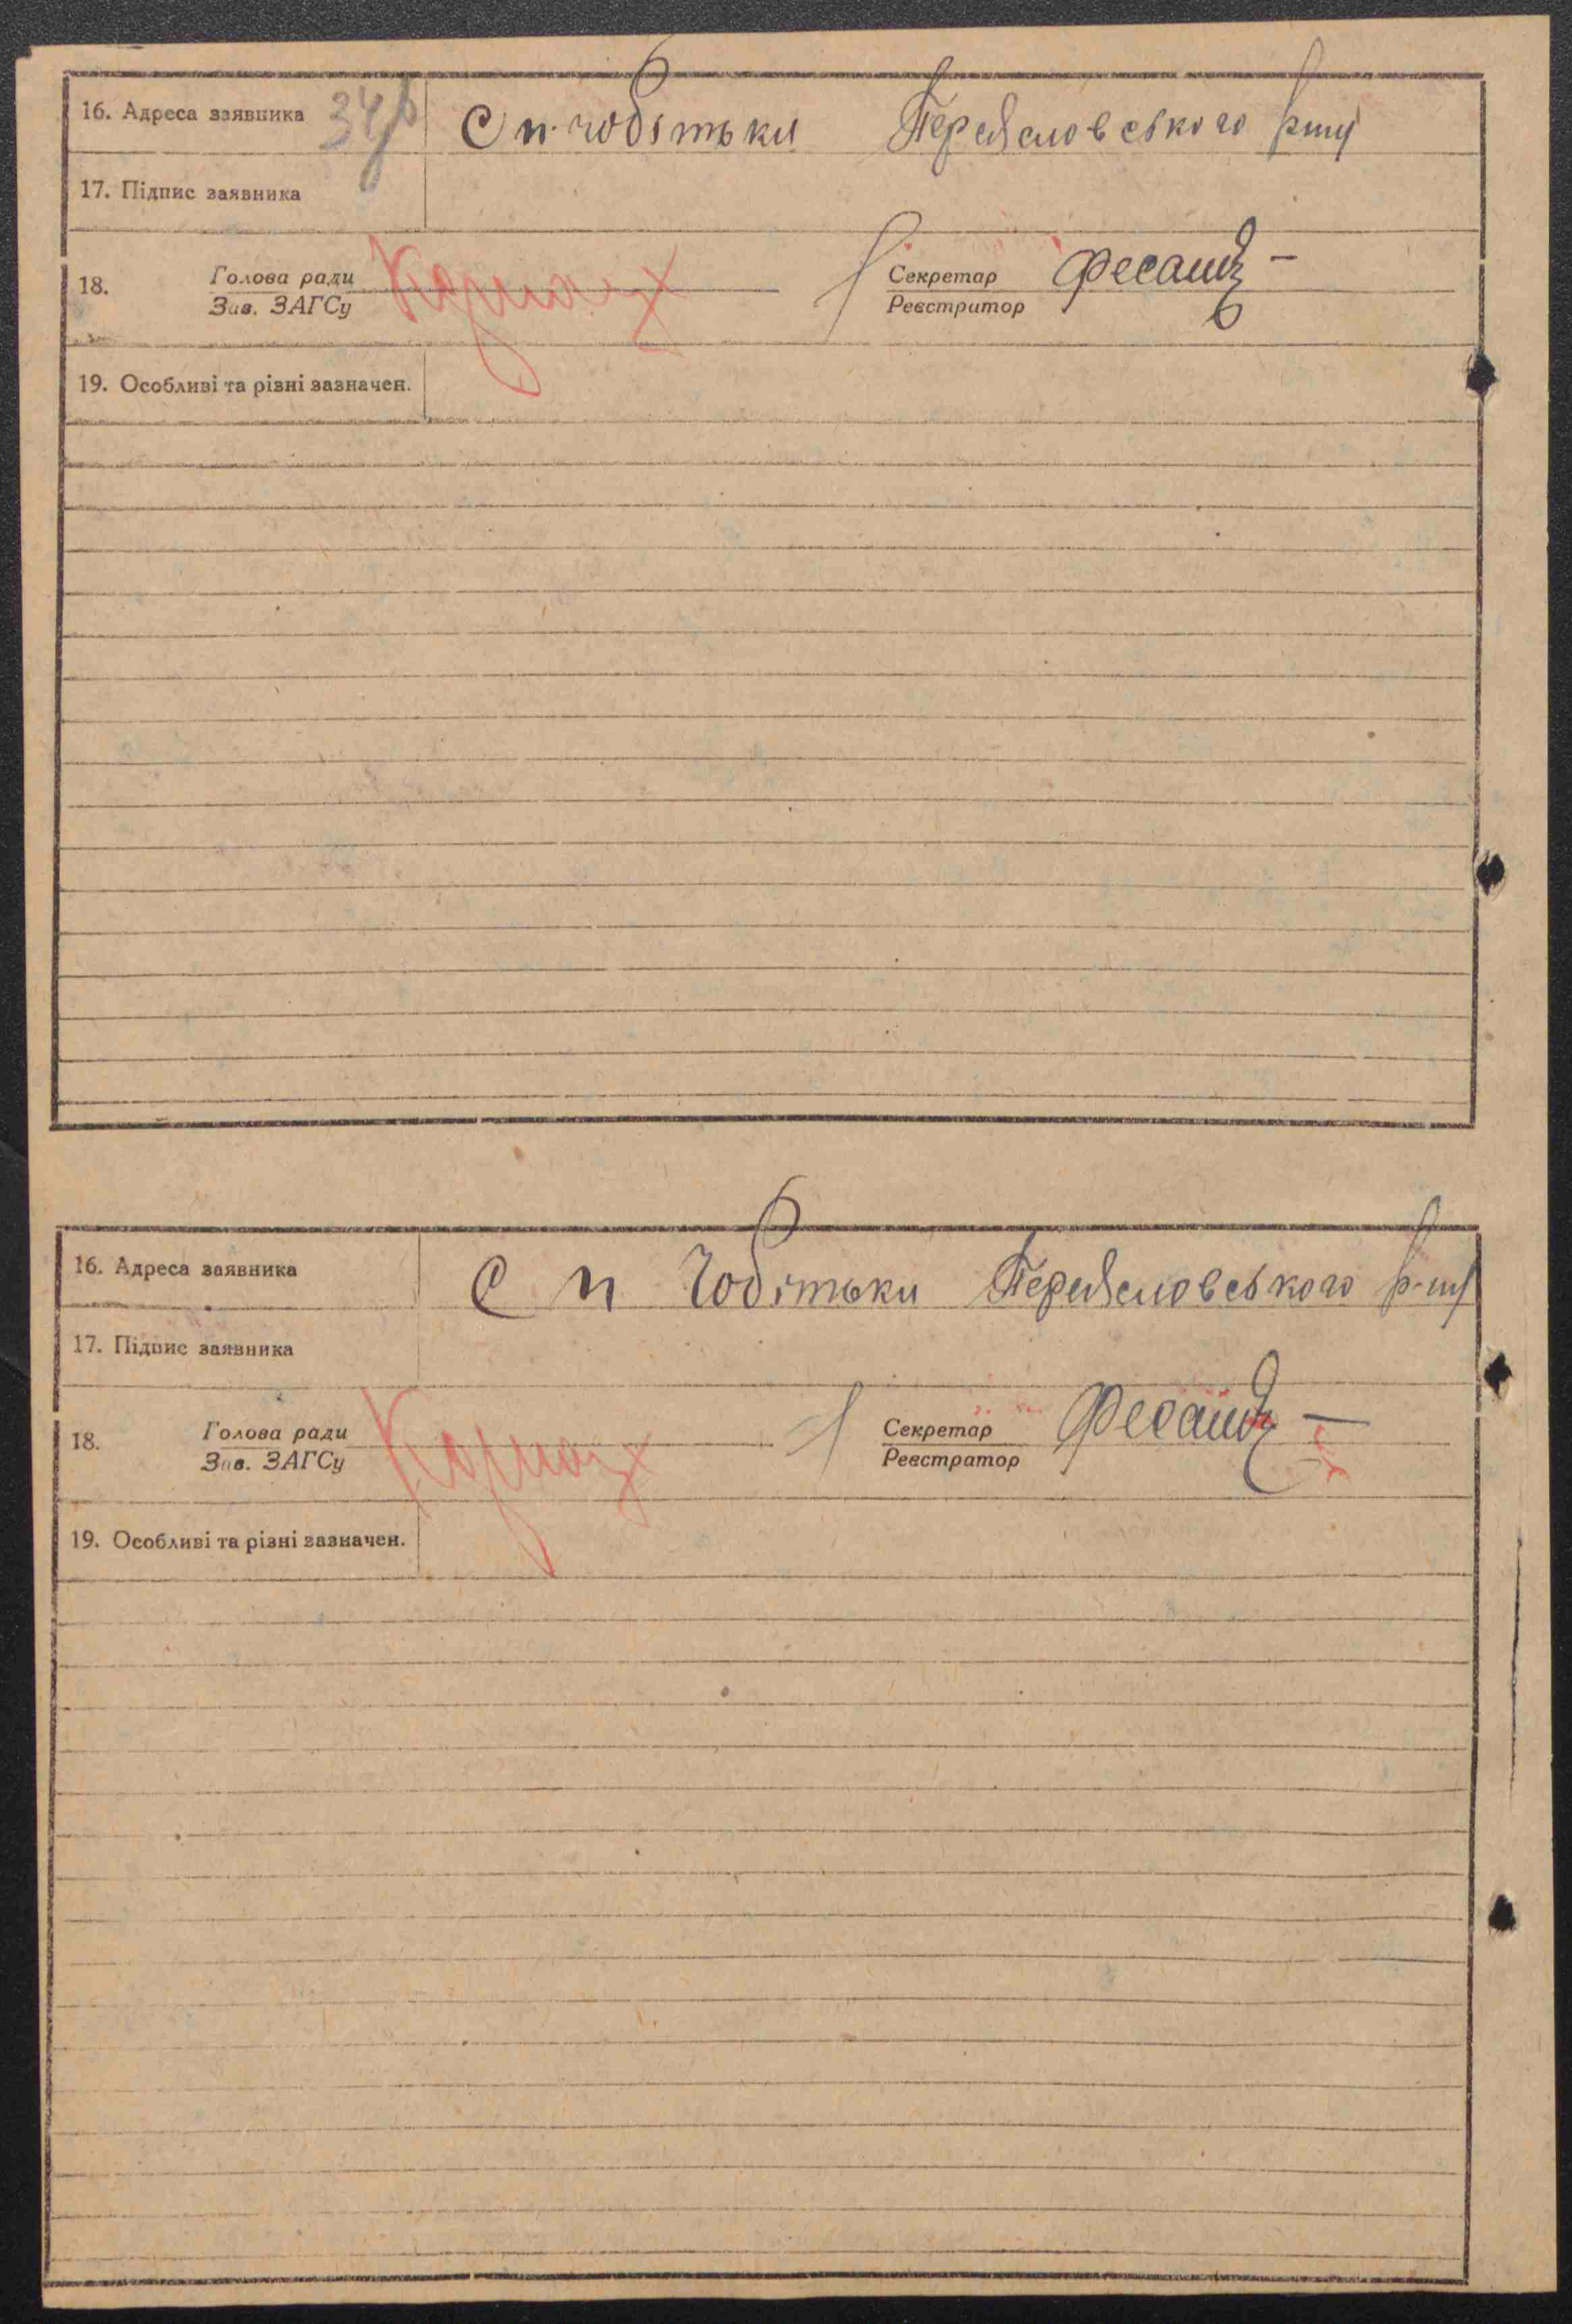 16. Адреса заявника С п. чобітьки Переясловського р-ну
17. Підпис заявника
18. Голова ради Секретар
Зав. ЗАГСу Реєстратор
19. Особливі та різні зазначен.
16. Адреса заявника С п Чобітьки Переясловського р-ну
17. Підпис заявника
18. Голова ради Секретар
Зав. ЗАГСу Реєстратор
19. Особливі та різні зазначен.